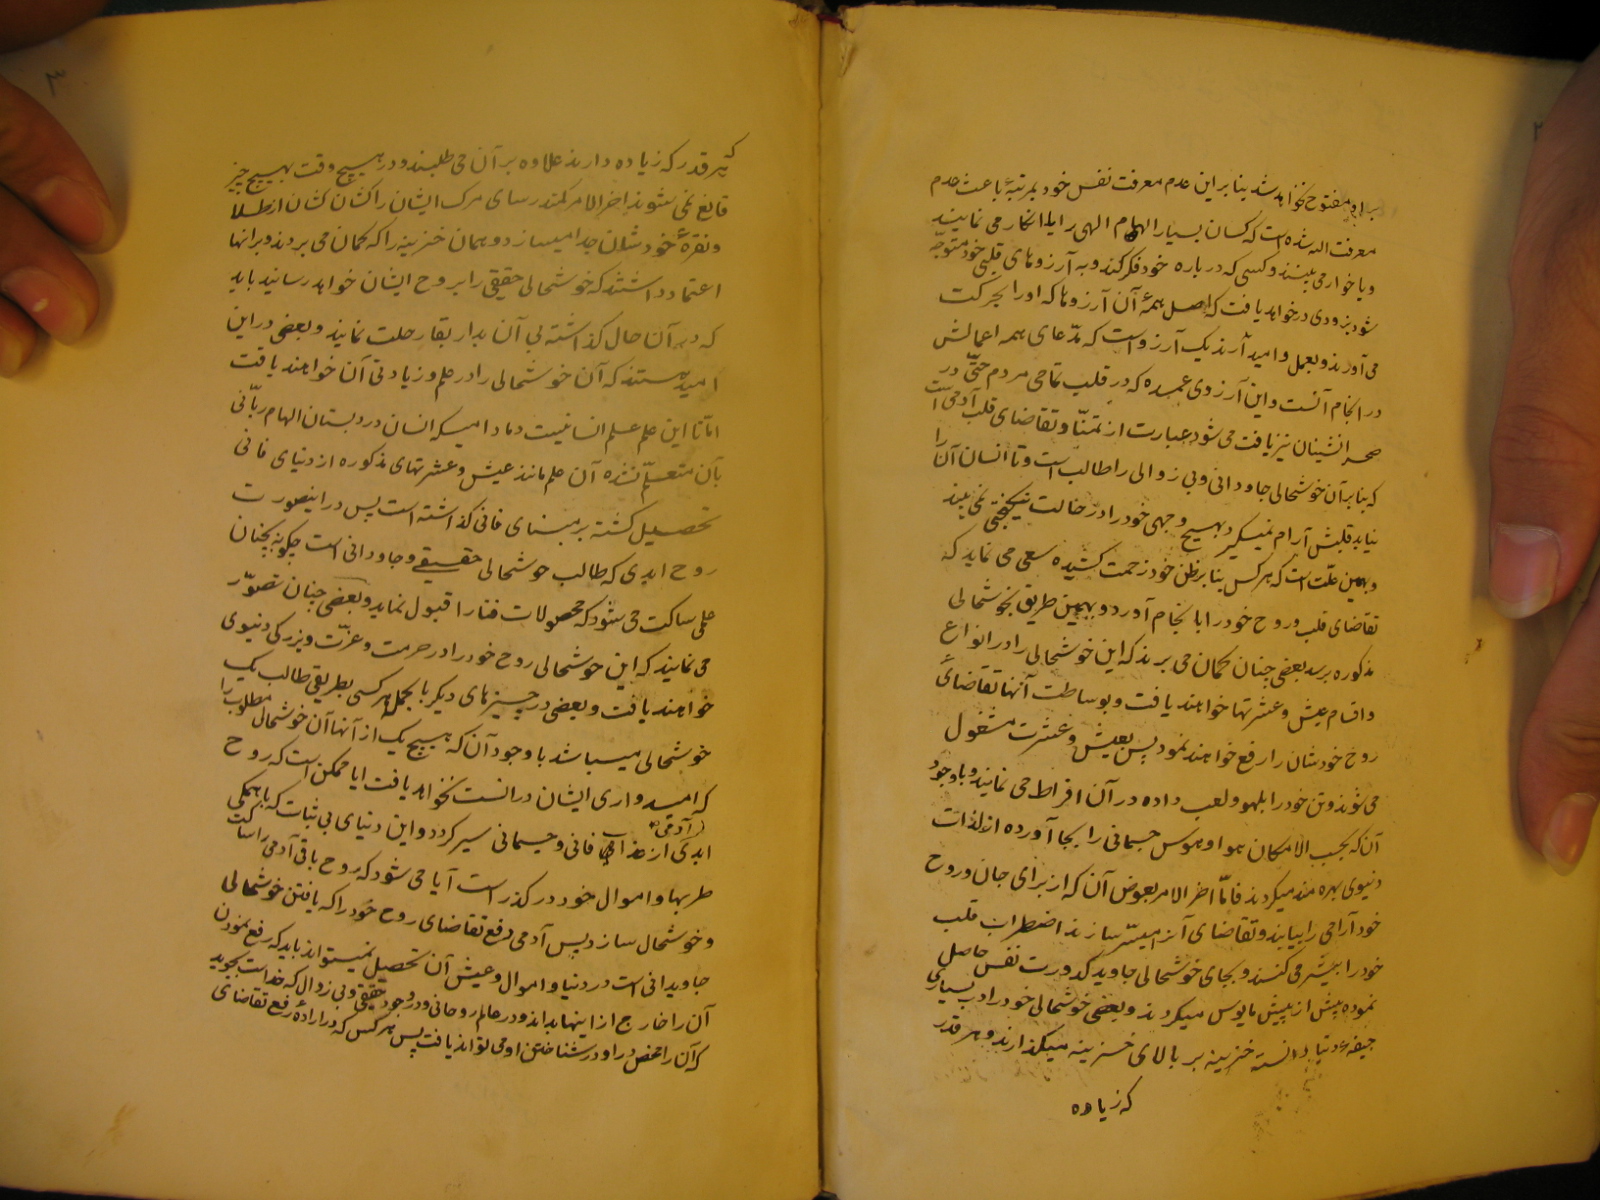 بر او مفتوح نخواهد شد بنا بر این عدم معرفت نفس خود بمرتبهٔ باعث عدم
معرفت اله شده است که کسان بسیار الهام الهی را یا انکار می نمایند
و یا خوار می بینند و کسی که درباره خود فکر کند و به آرزوهای قلبی خود متوجّه
شود بزودی در خواهد یافت که اصل همهٔ آن آرزوها که او را بحرکت
می آورند و بعمل و امید آرند یک آرزو است که مدّعای همه اعمالش
در انجام آنست و این آرزوی عمده که در قلب تمامی مردم حتّی در
صحرانشینان نیز یافت می شود عبارت از تمنّا و تقاضای قلب آدمی است
که بنا بر آن خوشحالی جاودانی و بی زوالی را طالب است و تا انسان آن را
نیابد قلبش آرام نمیگیرد و بهیچ وجهی خود را در حالت نیکبختی نمی بیند
و بهمین علّت است که هر کس بنا بر ظن خود زحمت کشیده سعی می نماید که
تقاضای قلب و روح خود را با نجام آورد و بهمین طریق بخوشحالی
مذکوره برسد بعضی چنان گمان می برند که این خوشحالی را در انواع
و اقسام عیش و عشرتها خواهند یافت و بوساطت آنها تقاضای
روح خودشان را رفع خواهند نمود پس بعیش و عشرت مشغول
می شوند و تن خود را بلهو و لعب داده در آن افراط می نمایند و با وجود
آن که بحسب الامکان هوا و هوس جسمانی را بجا آورده از لذات
دنیوی بهره مند میگردند فامّا اخر الامر بعوض آن که از برای جان و روح
خود آرامی را بیابند و تقاضای آنرا میسّر سازند اضطراب قلب
خود را بیشتر می کنند و بجای خوشحالی جاوید کدورت نفس حاصل
نموده بیش از پیش مایوس میگردند و بعضی خوشحالی خود را در بسیاری
جیفهٔ دنیا دانسته خزینه بر بالای خزینه میگذارند و هر قدر
که زیاده
۳
که هر قدر که زیاده دارند علاوه بر آن می طلبند و در هیچ وقت بهیچ چیز
قانع نمی شوند اخر الامر کمند رسای مرگ ایشان را کشان کشان از طلا
و نقرهٔ خودشان جدا میسازد و همان خزینه را که گمان می بردند و بر آنها
اعتماد داشتند که خوشحالی حقیقی را بروح ایشان خواهد رسانید باید
که در آن حال گذاشته بی آن بدار بقا رحلت نمایند و بعضی در این
امید هستند که آن خوشحالی را در علم و زیادتی آن خواهند یافت
امّا تا این علم علم انسانیست و مادامیکه انسان در دبستان الهام ربّانی
بآن متعلّم نشده آن علم مانند عیش و عشرتهای مذکوره از دنیای فانی
تحصیل گشته بر مبنای فانی گذاشته است پس در اینصورت
روح ابدی که طالب خوشحالی حقیقی و جاودانی است چگونه بچنان
علمی ساکت می شود که محصولات فنا را قبول نماید و بعضی چنان تصوّر
می نمایند که این خوشحالی روح خود را در حرمت و عزّت و بزرگی دنیوی
خواهند یافت و بعضی در چیزهای دیگر بالجمله هر کسی بطریقی طالب یک
خوشحالی میباشد با وجود آن که هیچ یک از آنها آن خوشحالی مطلوب را
که امیدواری ایشان در انست نخواهد یافت ایا ممکن است که روح
ابدی آدمی از فانی و جسمانی سیر گردد و این دنیای بی ثبات که با همکی
طربها و اموال خود در گذر است آیا می شود که روح باقی آدمی را ساکت
و خوشحال سازد پس آدمی رفع تقاضای روح خود را که یافتن خوشحالی
جاویدانی است در دنیا و اموال و عیش آن تحصیل نمیتواند باید که رفع نمودن
آن را خارج از اینها بداند و در عالم روحانی و در وجود حقیقی و بی زوال که خداست بجوید
که آن را محض در او و در شناختن او می تواند یافت پس هر کس که در ارادهٔ رفع تقاضای